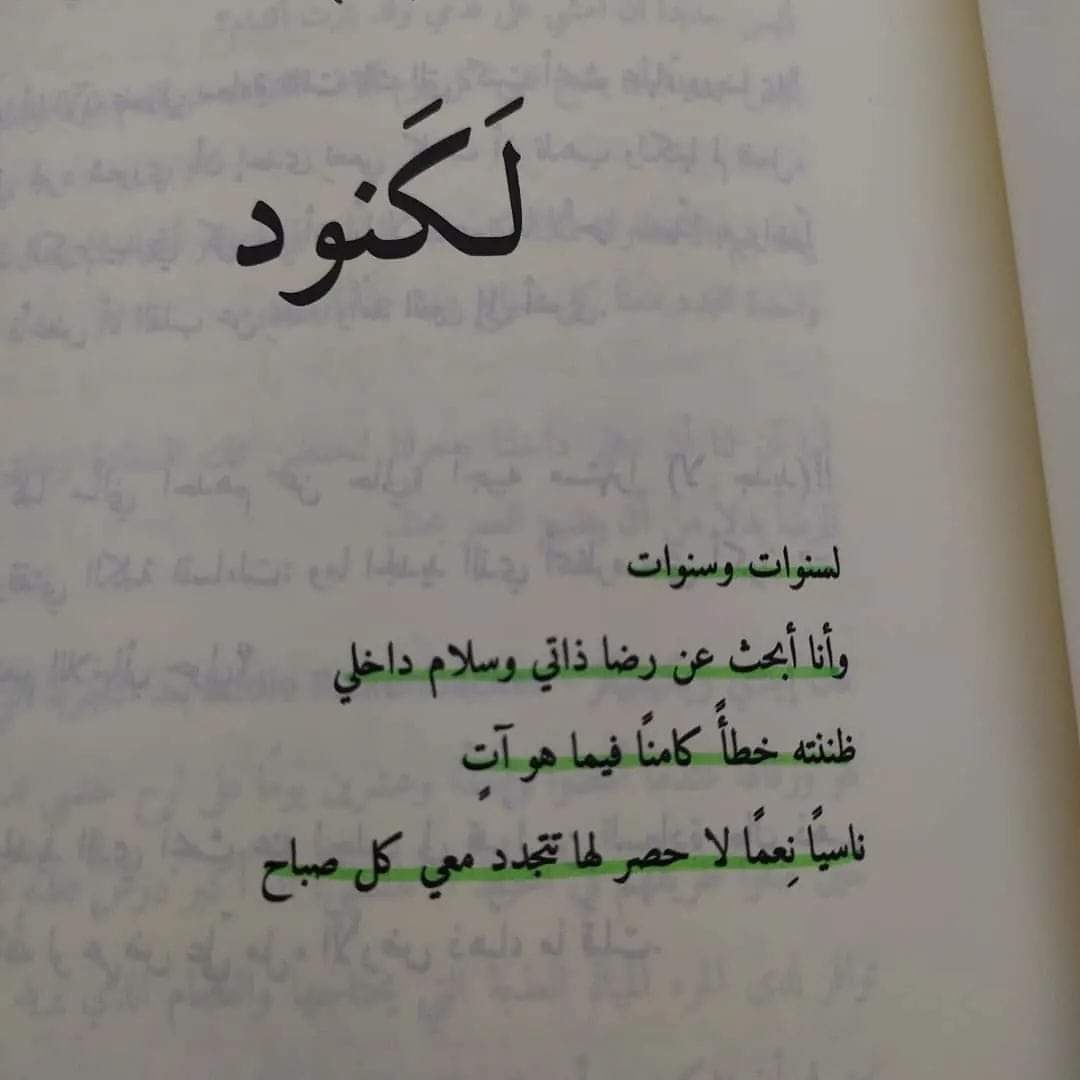 لَكَنود
لسنوات وسنوات
وأنا أبحث عن رضا ذاتي وسلام داخلي
ظننته خطأً كامنًا فيما هو آتٍ
ناسيًا نِعمًا لا حصر لها تتجدد معي كل صباح